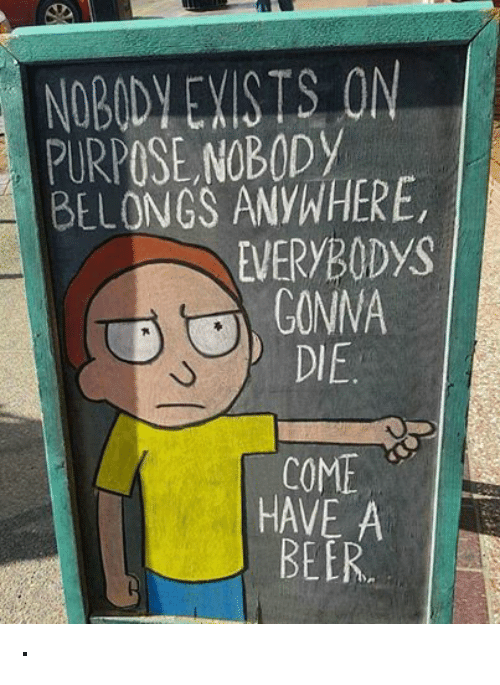 NOBODY EXISTS ON
PURPOSE, NOBODY
BELONGS ANYWHERE,
EVERYBODYS
GONNA
DIE.
COME
HAVE A
BEER.